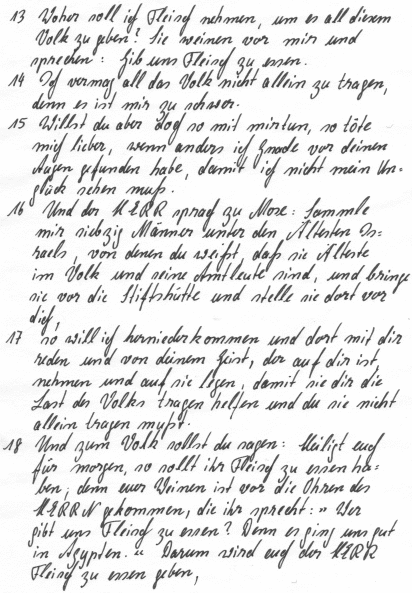 13 Woher soll ich Fleisch nehmen, um es all diesem
Volk zu geben? Sie weinen vor mir und
sprechen: Gib uns Fleisch zu essen.
14 Ich vermag all das Volk nicht allein zu tragen,
denn es ist mir zu schwer.
15 Willst du aber doch so mit mir tun, so töte
mich lieber, wenn anders ich Gnade vor deinen
Augen gefunden habe, damit ich nicht mein Un-
glück sehen muß.
16 Und der HERR sprach zu Mose: Sammle
mir siebzig Männer unter den Ältesten Is-
raels, von denen du weißt, daß sie Älteste
im Volk und seine Amtleute sind, und bringe
sie vor die Stiftshütte und stelle sie dort vor
dich,
17 so will ich herniederkommen und dort mit dir
reden und von deinem Geist, der auf dir ist,
nehmen und auf sie legen, damit sie dir die
Last des Volks tragen helfen und du sie nicht
allein tragen mußt.
18 Und zum Volk sollst du sagen: Heiligt euch
für morgen, so sollt ihr Fleisch zu essen ha-
ben; denn euer Weinen ist vor die Ohren des
HERRN gekommen, die ihr sprecht: » Wer
gibt uns Fleisch zu essen? Denn es ging uns gut
in Ägypten. « Darum wird euch der HERR
Fleisch zu essen geben,